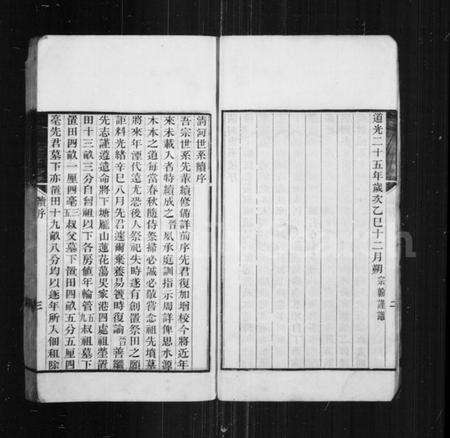 道光二十五年歲次乙巳十二月朔 宗翰謹識
清河世系續序
吾宗世系先輩續修備詳前序先君復加增校今將近年
來未載入者特續成之晉夙承庭訓指示周詳俾思水源
木本之道每當春秋隨侍祭掃必誠必敬嘗念祖先墳墓
將來年湮代遠尤恐後人祭祀失時遂有創置祭田之願
詎料光緒辛巳八月先君遽爾棄養易簀時復諭晉善繼
先志謹遵遺命將下塘雁山蓮花蕩吳家港四處祖塋置
田十三畝三分自 祖以下各房値年輪管五九叔祖墓下
置田四畝一厘四毫五三叔父墓下置田四畝五分五厘四
毫先君墓下亦置田十九畝八分均以逐年所入個租除
續序
三
二